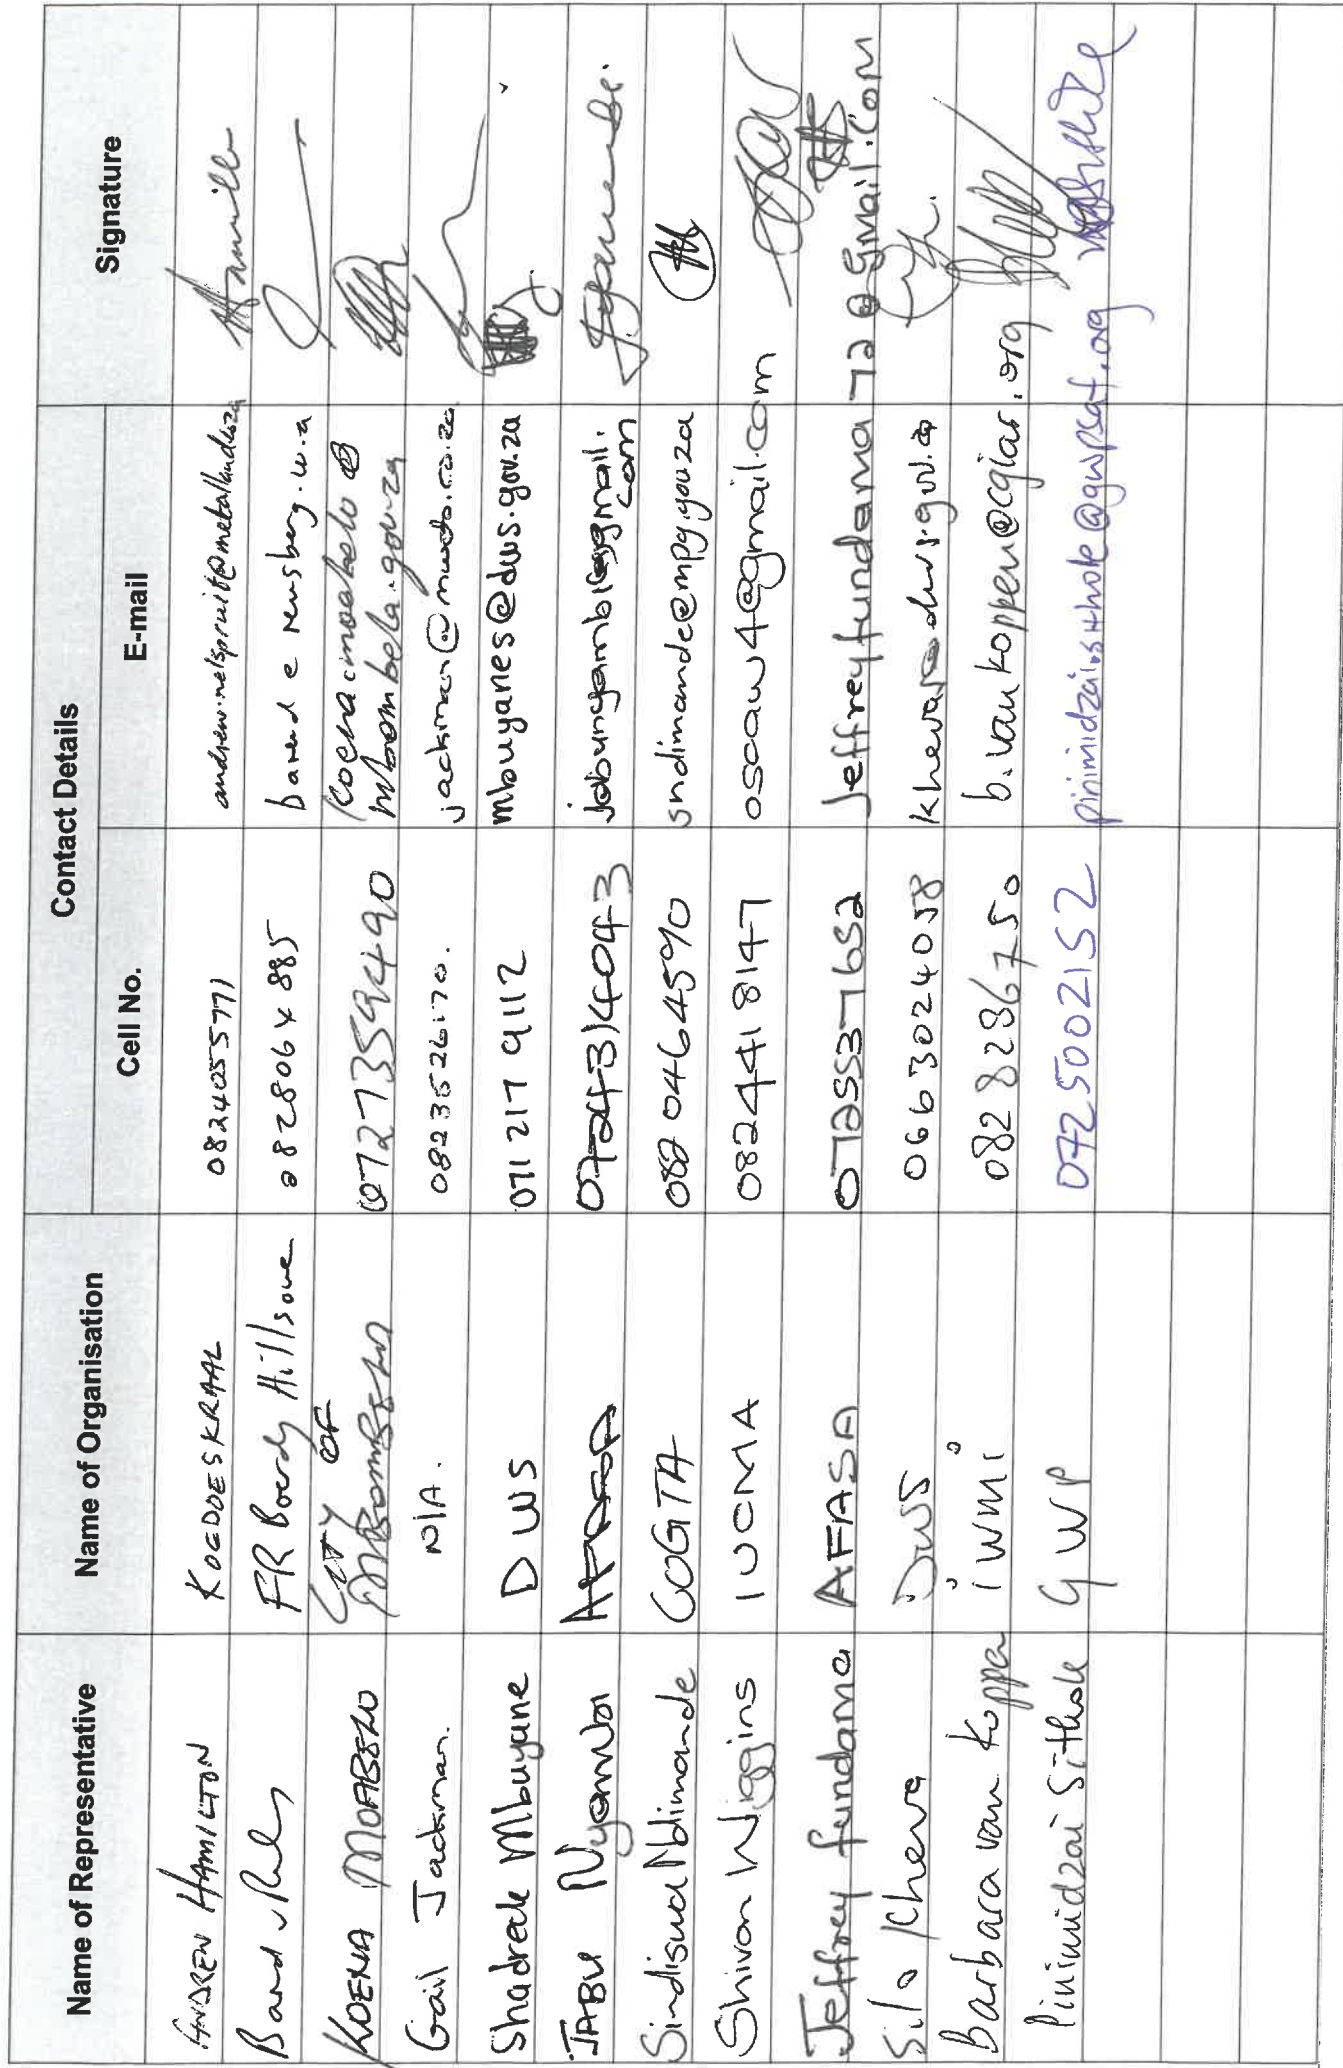 Name of Representative Name of Organisation Contact Details Signature
Cell No. E-mail
ANDREW HAMILTON KOEDOESKRAAL 0824055771
FR Boerdy Hillsove
KOENA MOABELO CITY OF MBOMBELA 0727359490 mbombela.gov.za
Gail Jackman. N/A. 0823526170. jackman@mweb.co.za
Shadrack Mbuyane DWS 071 217 9112 mbuyanes@dws.gov.za
JABU Nyambi AFASA jabunyambi@gmail.com
Sindiswa Ndimande COGTA 082 0464590 sndimande@mpg.gov.za
Shivon Wiggins IUCMA 0824418147 oscaw4@gmail.com
Jeffrey fundama AFASA 0725537652 Jeffreyfundama72@gmail.com
Silo Kheva DWS 0663024058
Barbara van Koppen iwmi 0828286750 b.vankoppen@cgiar.org
Pinimidzai Sithole GWP 0725002152 pinimidzai.sithole@gwpsaf.org